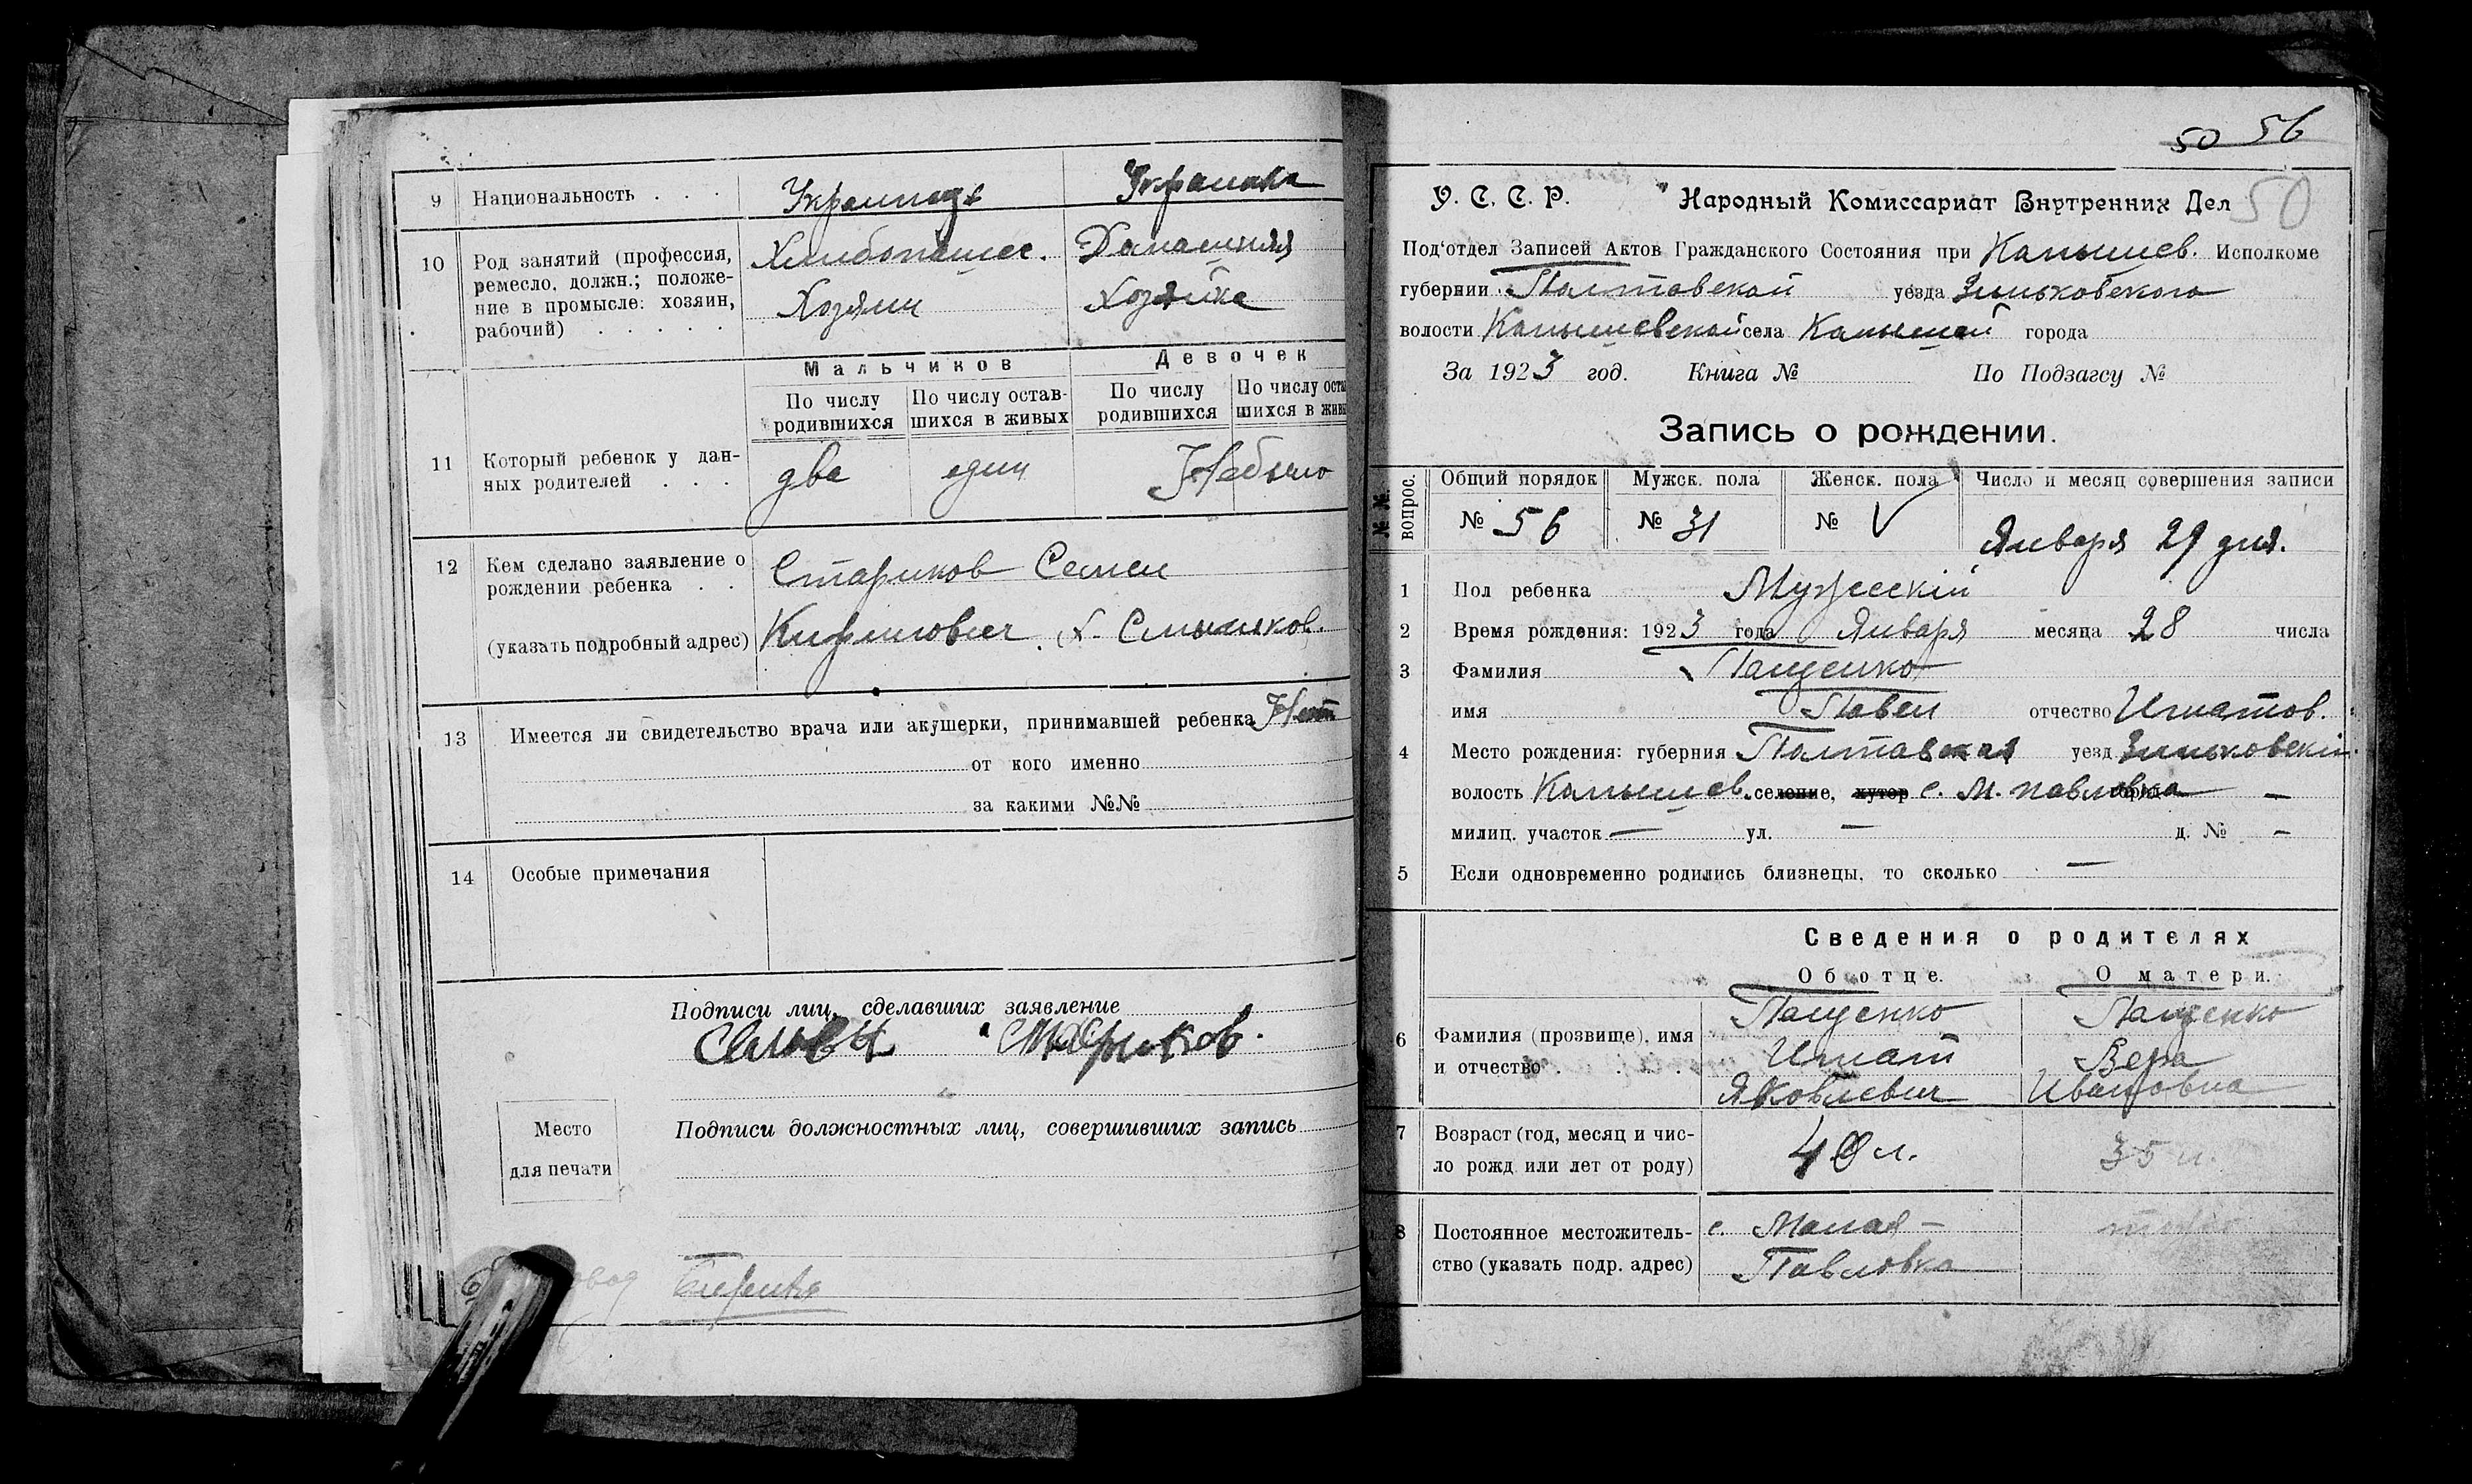 9 Национальность . . . Украинец Украинка
10 Род занятий (профессия, Хлибопашес. Домашняя
ремесло, должн.; положе-
ние в промысле: хозяин, Хозяин Хозяйка
рабочий) . . . . .
Мальчиков Девочек
По числу По числу остав- По числу По числу оста
родившихся шихся в живых родившихся шихся в живы
11 Который ребенок у дан- два один Небыло
ных родителей . . .
12 Кем сделано заявление о Стариков Семен
рождении ребенка . .
(указать подробный адрес) Кирилович х. Смышков.
13 Имеется ли свидетельство врача или акушерки, принимавшей ребенка Нет
от кого именно
за какими №№
14 Особые примечания
Подписи лиц, сделавших заявление
Семен Стариков.
Подписи должностных лиц, совершивших запись
Место
для печати
50 56
50
У. С. С. Р. Народный Комиссариат Внутренних Дел
Под'отдел Записей Актов Гражданского Состояния при Камышев. Исполкоме
губернии Полтавской уезда Зиньковского
волости Камышевской села Камышей города
За 1923 год. Книга № По Подзагсу №
Запись о рождении.
№№ вопрос. Общий порядок Мужск. пола Женск. пола Число и месяц совершения записи
№ 56 № 31 № V Января 29 дня.
1 Пол ребенка Мужеский
2 Время рождения: 1923 года Января месяца 28 числа
3 Фамилия Пащенко
имя Павел отчество Игнатов.
4 Место рождения: губерния Полтавская уезд Зиньковский
волость Камышев. селение, хутор с. М. павловка город —
милиц. участок — ул. — д. № —
5 Если одновременно родились близнецы, то сколько —
Сведения о родителях
Об отце. О матери.
Пащенко Пащенко
6 Фамилия (прозвище), имя Игнат Вера
и отчество . . . . Яковлевич Ивановна
7 Возраст (год, месяц и чис- 40 л. 35 л.
ло рожд. или лет от роду)
8 Постоянное местожитель- с. Малая - тоже
ство (указать подр. адрес) Павловка